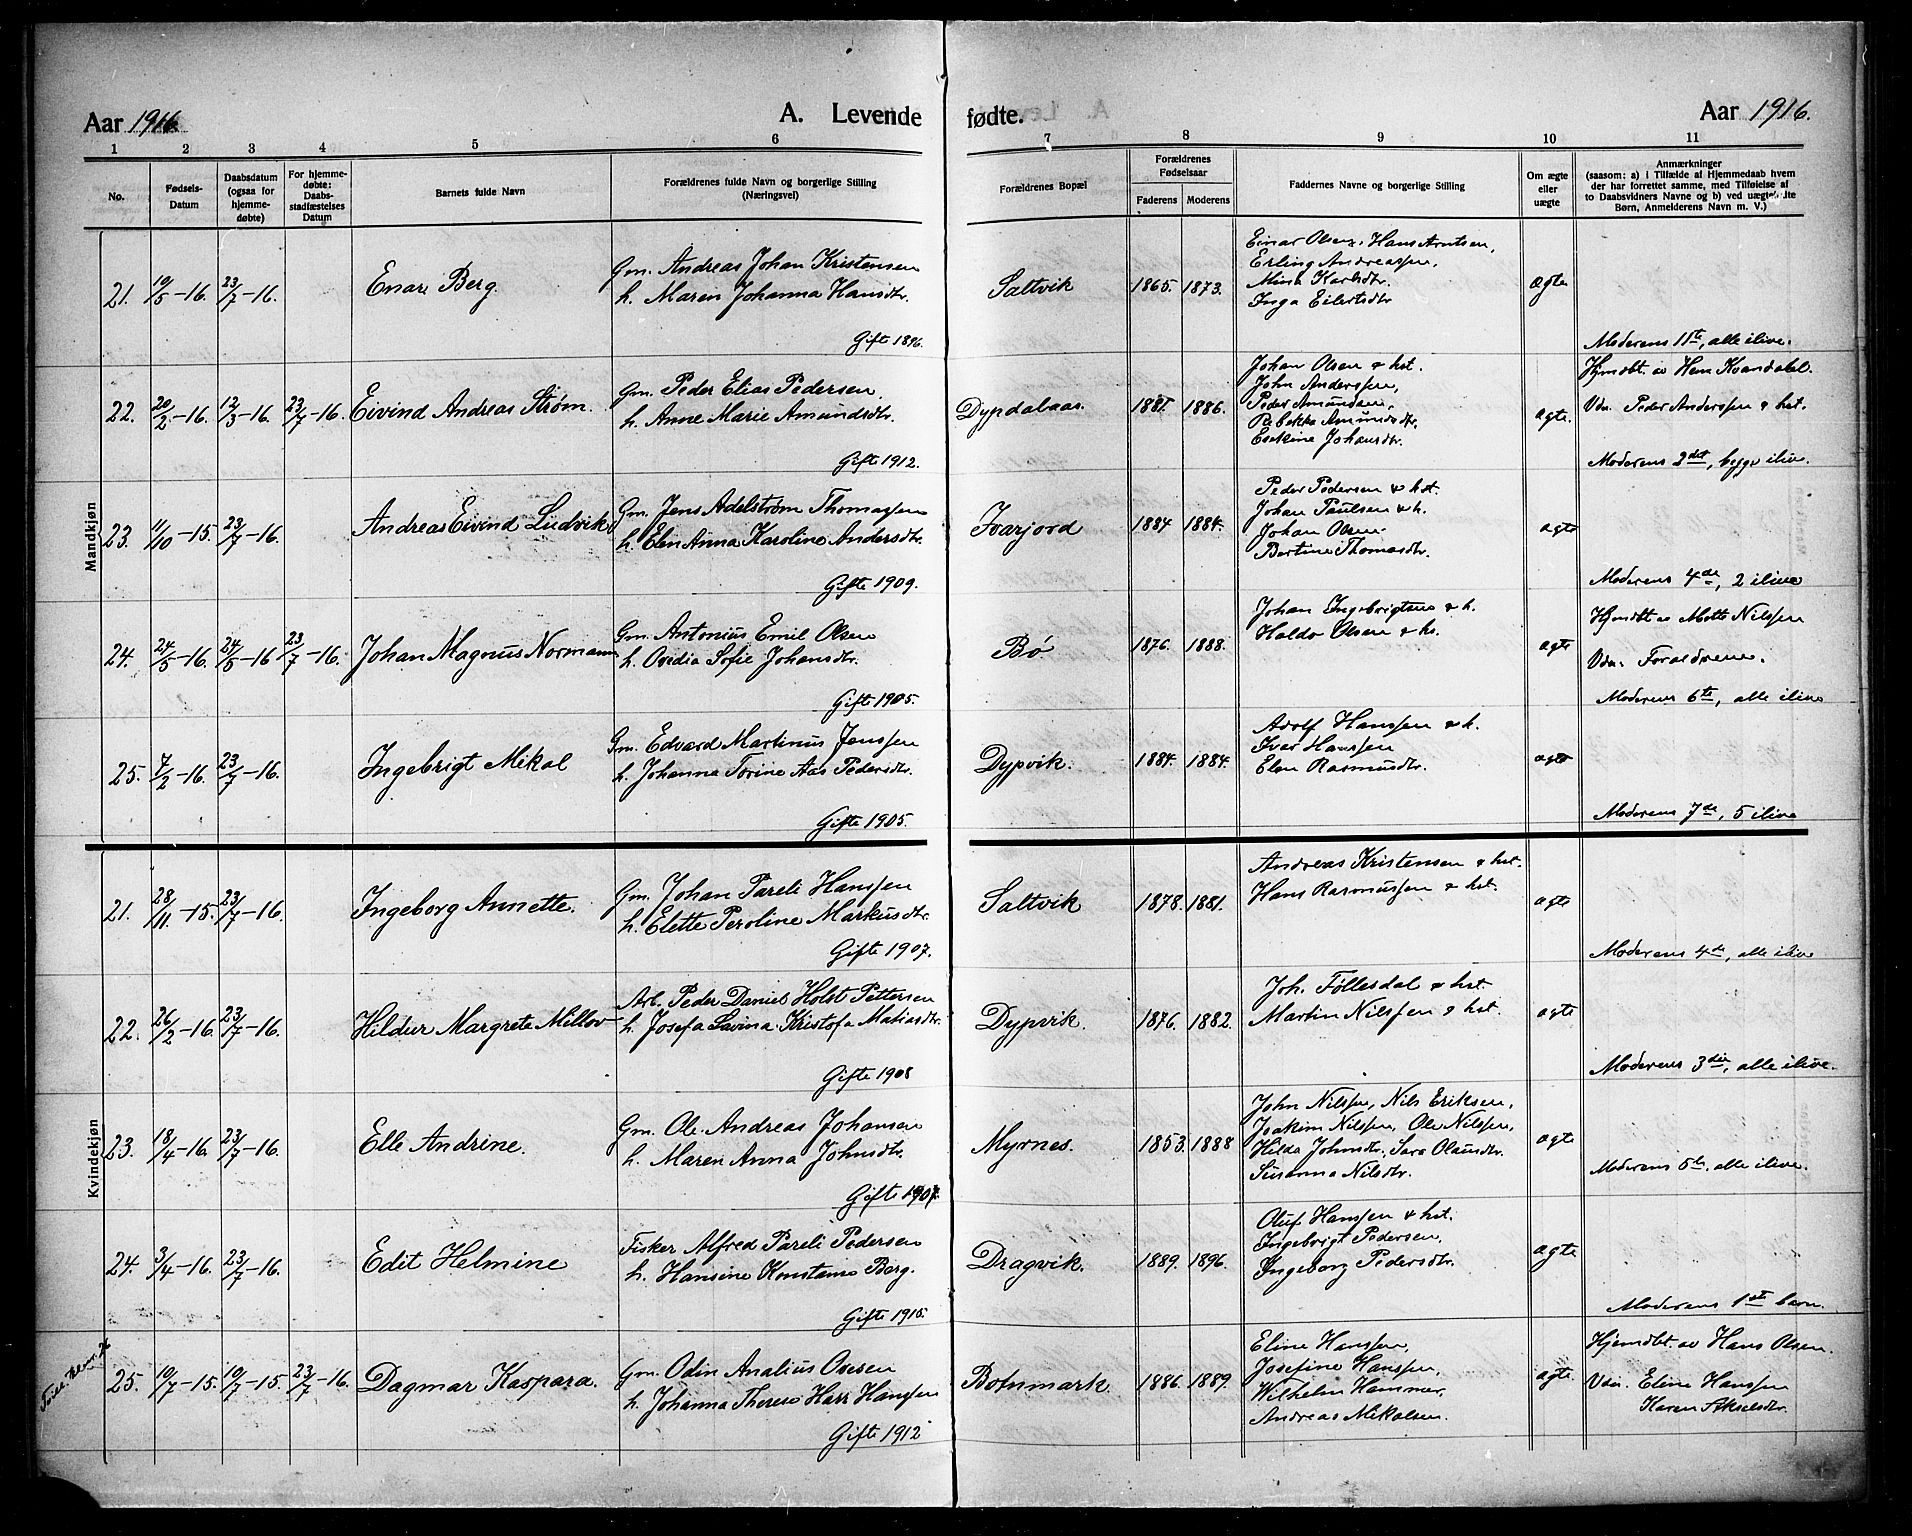 Aar 1916.
A. Levende fødte.
Aar 1916.
1 2 3 4 5 6 7 8 9 10 11
No.
Fødsels-
Datum
Daabsdatum
(ogsaa for
hjemme-
døbte)
For hjemme-
døbte:
Daabs-
stadfæstelses
Datum
Barnets fulde Navn
Forældrenes fulde Navn og borgerlige Stilling
(Næringsvei)
Forældrenes Bopæl
Forældrenes
Fødselsaar
Faderens Moderens
Faddernes Navne og borgerlige Stilling
Om ægte
eller
uægte
Anmærkninger
(saasom: a) i Tilfælde af Hjemmedaab hvem
der har forrettet samme, med Tilføielse af
to Daabsvidners Navne og b) ved uægtefødte
Børn, Anmelderens Navn m. V.)
Mandkjøn
21. 10/5-16. 23/7-16. Enar Berg
Gm. Andreas Johan Kristensen
h. Maren Johanna Hansdtr.
Gifte 1896.
Saltvik 1865. 1873.
Einar Olsen, Hans Arntsen,
Erling Andreassen,
Mina Karlsdtr.
Inga Eilertsdtr
ægte
Moderens 11te, alle ilive.
22. 20/2-16. 12/3-16. 23/7-16. Eivind Andreas Strøm.
Gm. Peder Elias Pedersen
h. Anne Marie Amundsdtr.
Gifte 1912.
Dypdalaas. 1881. 1886.
Johan Olsen & hst.
John Anderssen,
Peder Amundsen,
Rebekka Amundsdtr,
Erikine Johansdtr.
ægte.
Hjmdbt. av Hem Kvandahl.
Vdn. Peder Anderssen & hst.
Moderens 2det, begge ilive.
23. 11/10-15. 23/7-16. Andreas Eivind Ludvik
Gm. Jens Adelstrøm Thomassen
h. Elen Anna Karoline Andersdtr.
Gifte 1909.
Ivarjord 1884 1884.
Peder Pedersen & hst.
Johan Paulsen & h.
Johan Olsen.
Bertine Thomasdtr.
ægte
Moderens 4de, 2 ilive
24. 24/5-16. 24/5-16 23/7-16. Johan Magnus Normann
Gm. Antonius Emil Olsen
h. Ovedia Sofie Johansdtr.
Gifte 1905.
Bø 1876. 1888.
Johan Ingebrigtsen & h.
Haldo Olsen & h.
ægte
Hjmdbt av Mette Nilssen
Vdn. Forældrene.
Moderens 6te, alle ilive
25. 7/2-16. 23/7-16. Ingebrigt Mikal
Gm. Edvard Martinus Jenssen
h. Johanna Torine Aas Pedersdtr.
Gifte 1905.
Dypvik. 1884. 1884.
Adolf Hanssen & h.
Ivar Hanssen
Elen Rasmusdtr.
ægte
Moderens 7de, 5 ilive
Kvindekjøn
21. 28/11-15. 23/7-16. Ingeborg Annette.
Gm. Johan Pareli Hanssen
h. Elette Peroline Markusdtr.
Gifte 1907.
Saltvik 1878. 1881.
Andreas Kristensen & hst.
Hans Rasmussen & hst.
ægte
Moderens 4de, alle ilive
22. 26/2-16. 23/7-16. Hildur Margrete Millov
Arb. Peder Daniel Holst Pettersen
h. Josefa Lavina Kristofa Matiasdtr.
Gifte 1908
Dypvik. 1876. 1882.
Joh. Föllesdal & hst
Martin Nilssen & hst.
ægte
Moderens 3die, alle ilive.
23. 18/4-16. 23/7-16. Elle Andrine.
Gm. Ole Andreas Johansen
h. Maren Anna Johnsdtr.
Gifte 1907.
Myrnes. 1853. 1888
John Nilssen, Nils Eriksen,
Joakim Nilssen, Ole Nilssen,
Hilda Johnsdtr., Sara Olausdtr.
Susanna Nilsdtr.
ægte
Moderens 5te, alle ilive.
24. 3/4-16. 23/7-16. Edit Helmine
Fisker Alfred Pareli Pedersen
h. Hansine Konstanse Berg.
Gifte 1915.
Dragvik. 1889. 1896.
Oluf Hanssen & hst.
Ingebrigt Pedersen,
Ingeborg Pedersdtr.
ægte
Moderens 1ste barn.
25. 10/7-15. 10/7-15. 23/7-16. Dagmar Kaspara.
Gm. Odin Analius Ovesen
h. Johanna Therese Harr Hanssen
Gifte 1912
Botnmark 1886. 1889.
Eline Hanssen,
Josefine Hanssen,
Wilhelm Hammer,
Andreas Mikalsen.
ægte
Hjemdbt av Hans Olsen.
Vdn. Eline Hanssen
Karen Akselsdtr.